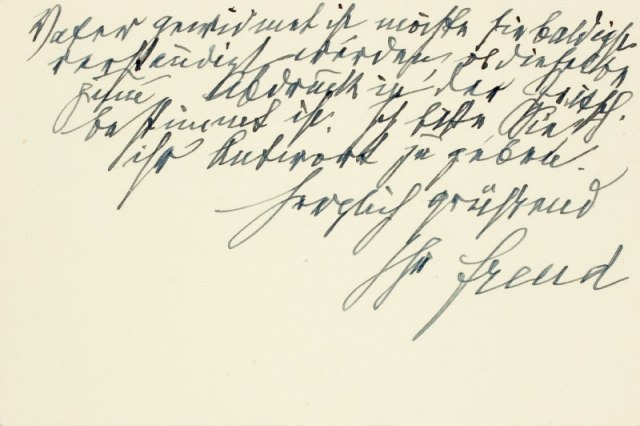 Vater gewidmet ist möchte sie baldigst
verständigt werden, ob dieselbe
zum Abdruck in der Zeitsch.
bestimmt ist. Ich bitte Sie
ihr Antwort zu geben.
Herzlich grüßend
Ihr Freud